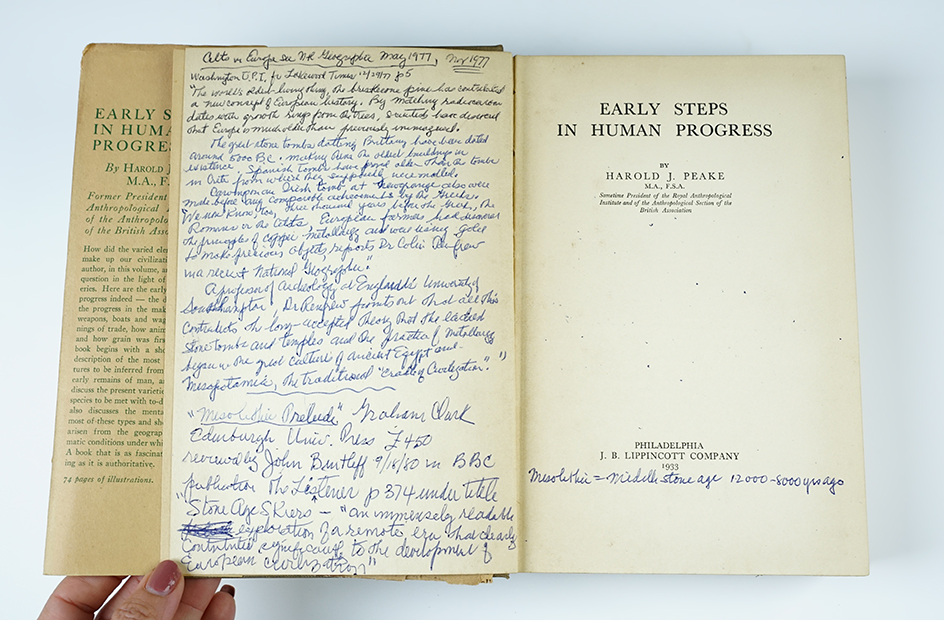 EARLY S
IN HUMA
PROGRE
By HAROLD J
M.A., F.
Former President
Anthropological
of the Anthropolo
of the British Asso
How did the varied ele
make up our civilizati
author, in this volume, a
question in the light of
eries. Here are the early
progress indeed — the d
the progress in the mak
weapons, boats and wag
nings of trade, how anim
and how grain was firs
book begins with a sho
description of the most
tures to be inferred from
early remains of man, a
discuss the present varietie
species to be met with to-d
also discusses the menta
most of these types and sho
arisen from the geograp
matic conditions under whi
A book that is as fascinat
ing as it is authoritative.
74 pages of illustrations.
Celts in Europe see Nat Geographic May 1977, Nov 1977
Washington U.P.I. fr Lakewood Times 12/29/77 p5
"The world's oldest living thing, the bristlecone pine has contributed
a new concept of European history. By matching radiocarbon
dates with growth rings from the trees, scientists have discovered
that Europe is much older than previously imagined.
The great stone tombs dotting Brittany have been dated
around 5000 BC. making them the oldest buildings in
existence. Spanish tombs have proved older than the tombs
in Crete from where they supposedly were modelled.
Irish tomb at Newgrange also were
made before any comparable achievements by the Greeks.
We now know, too, three thousand years before the Greeks, the
Romans or the Celts, European farmers had discovered
the principles of copper metallurgy and was using gold
to make precious objects, reports Dr Colin Renfrew
in a recent National Geographic."
A professor of archeology at England's University of
Southhampton, Dr Renfrew points out that all this
contradicts the long-accepted theory that the earliest
stone tombs and temples and the practice of metallurgy
began in the great culture of ancient Egypt and
Mesopotamia, the traditional "cradle of civilization."
"Mesolithic Prelude" Graham Clark
Edinburgh Univ. Press £4.50
reviewed by John Bintliff 9/18/80 in BBC
publication The Listener p 374 under title
"Stone Age Skiers" — "an immensely readable
exploration of a remote era that clearly
contributed significantly to the development of
European civilization"
EARLY STEPS
IN HUMAN PROGRESS
BY
HAROLD J. PEAKE
M.A., F.S.A.
Sometime President of the Royal Anthropological
Institute and of the Anthropological Section of the
British Association
PHILADELPHIA
J. B. LIPPINCOTT COMPANY
1933
Mesolithic = Middle stone age 12000-8000 yrs ago